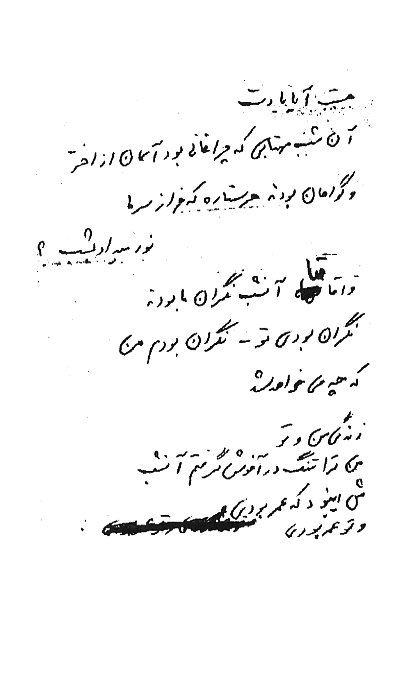 آیا یادت
آن شب مهتابی که چراغانی بود آسمان از اختر
و گواهان بودند هر ستاره که فراز سر ما
نور میداد بشب ؟
آنشب نگران ما بودند
نگران بودی تو - نگران بودم من
که چه می خواهد شد
زندگی من و تو
من ترا تنگ در آغوش گرفتم آنشب
مثل اینبود که عمر بودی
و تو عمر بودی